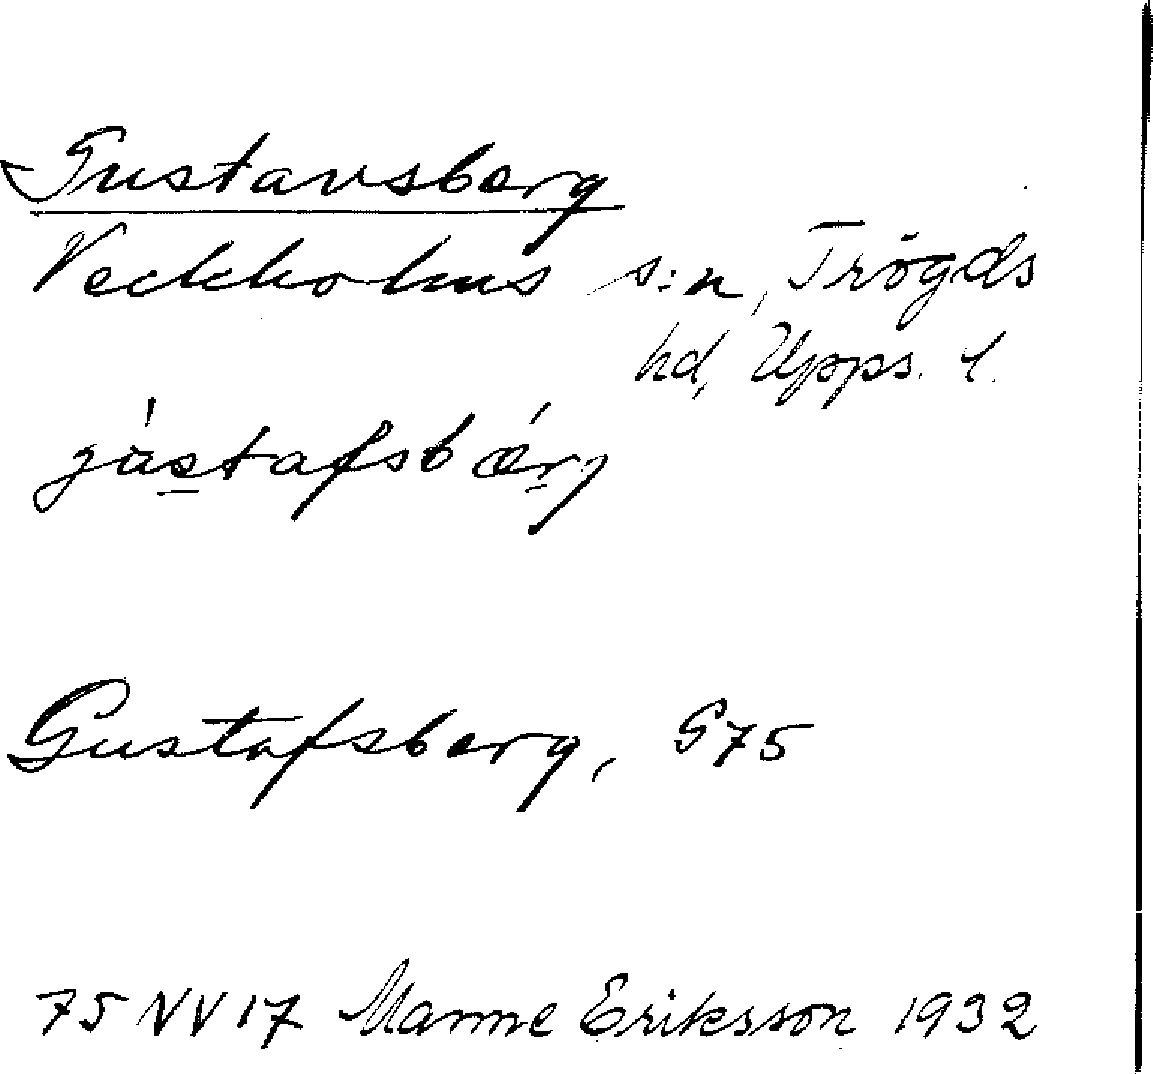 Gustavsberg
Veckholms s:n, Trögds
hd, Upps. l.
gústafsbærj
Gustafsberg, G75
75 NV 17 Manne Eriksson 1932